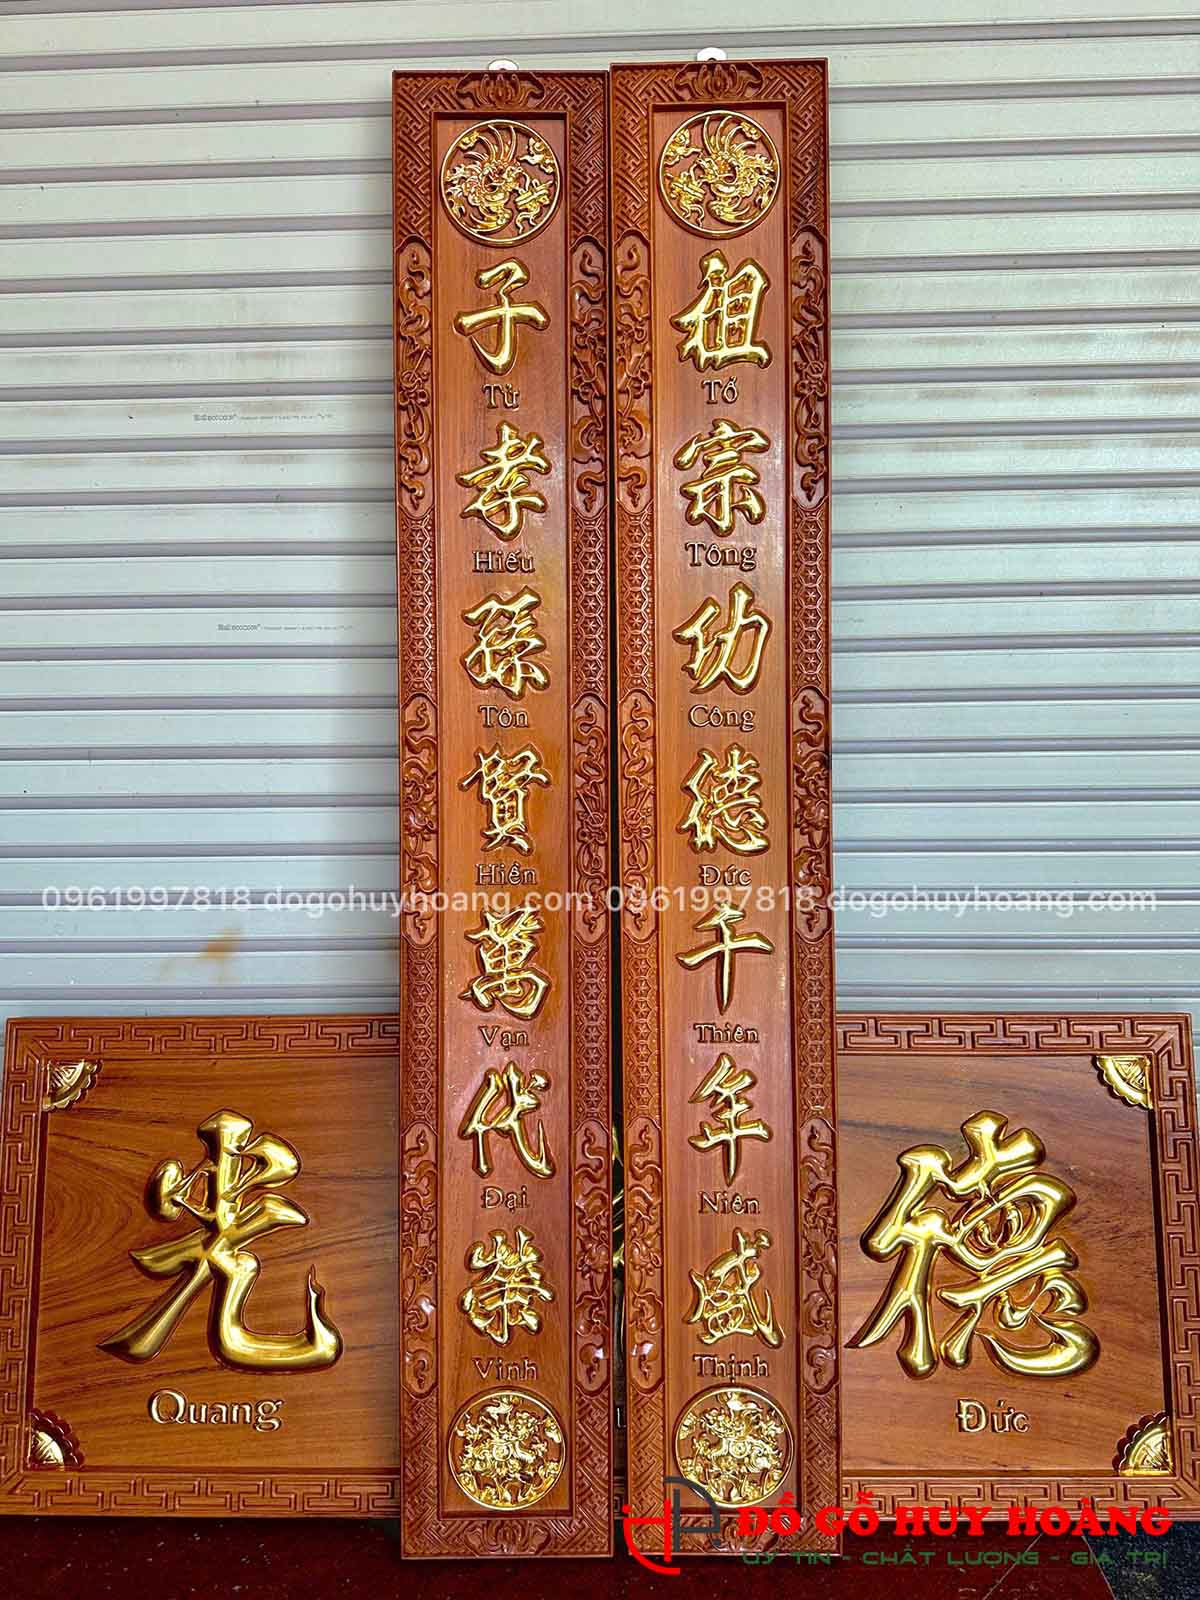 祖
Tổ
宗
Tông
功
Công
德
Đức
千
Thiên
年
Niên
盛
Thịnh
子
Tử
孝
Hiếu
孫
Tôn
賢
Hiền
萬
Vạn
代
Đại
榮
Vinh
光
Quang
德
Đức
0961997818 dogohuyhoang.com 0961997818 dogohuyhoang.com
ĐỒ GỖ HUY HOÀNG
UY TÍN - CHẤT LƯỢNG - GIÁ TRỊ